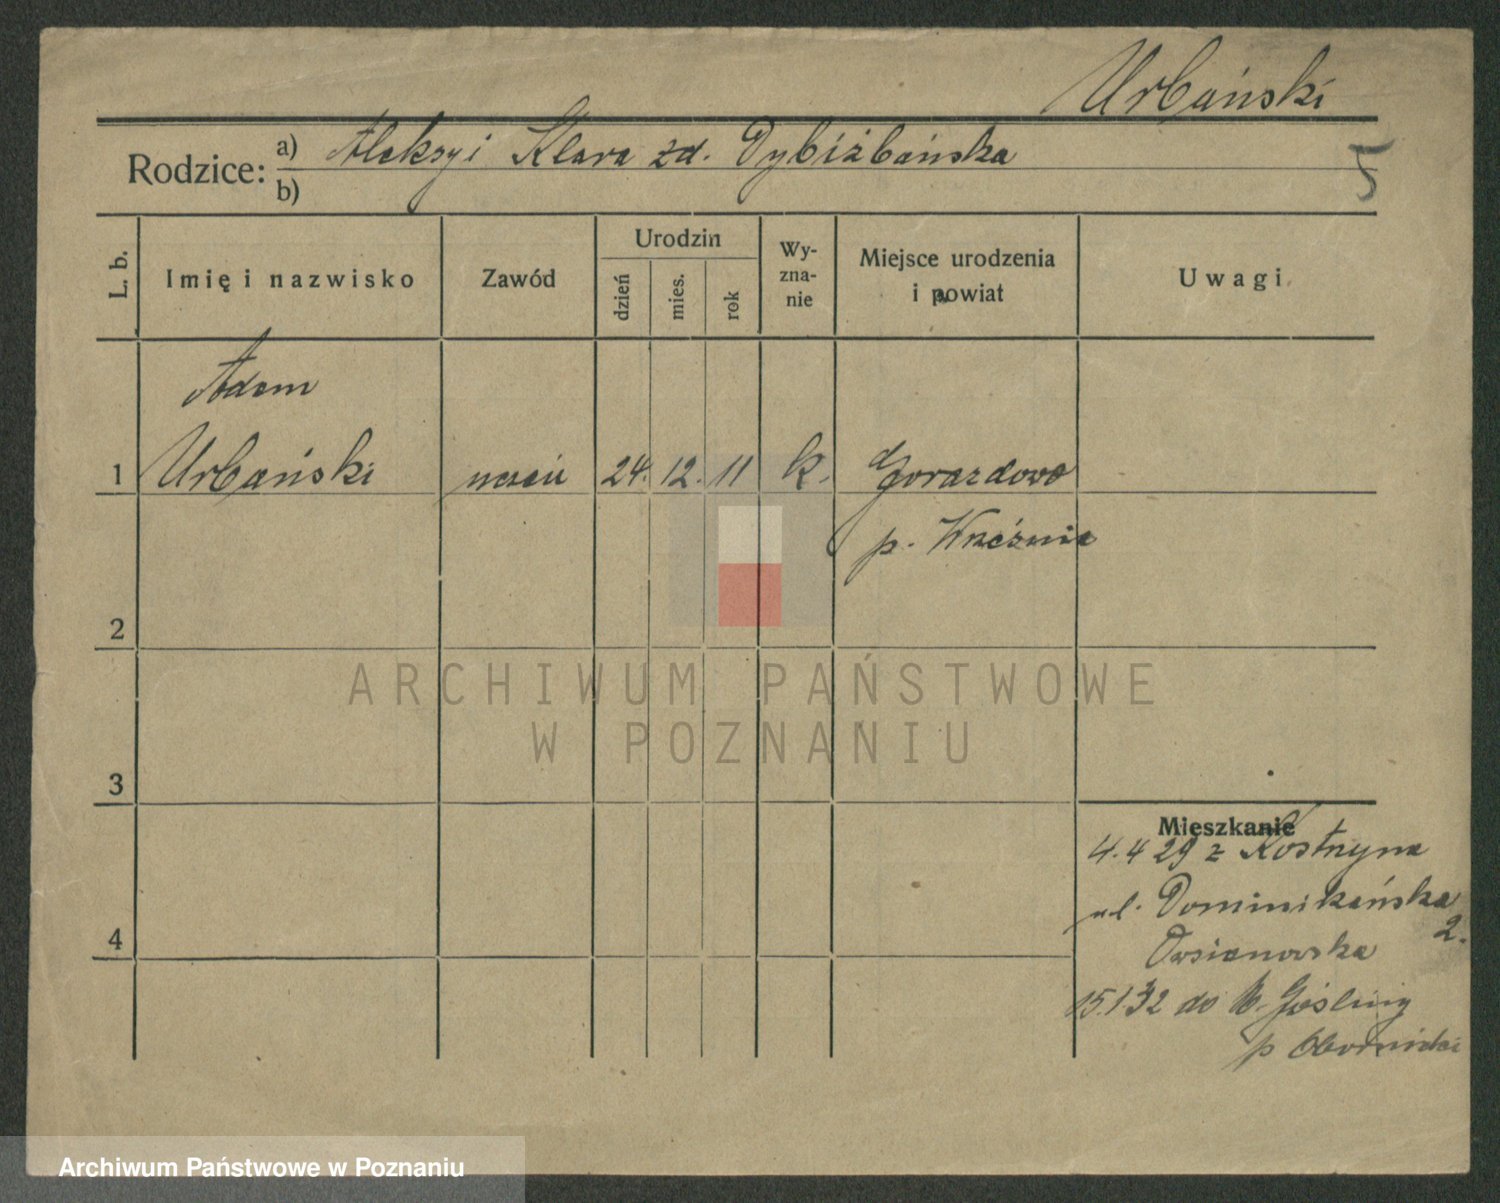 Urbański
Rodzice: a) Aleksy i Klara zd. Dybiżbańska
b)
5
L. b.
Imię i nazwisko
Zawód
Urodzin
dzień
mies.
rok
Wy-
zna-
nie
Miejsce urodzenia
i powiat
Uwagi
Adam
1 Urbański uczeń 24. 12. 11 k. Gorazdowo
p. Września
2
3
4
Mieszkanie
4.4 29 z Kostrzyna
ul. Dominikańska
2.
Owsianowska
15.1 32 do M. Gośliny
p Obornicki
ARCHIWUM PAŃSTWOWE
W POZNANIU
Archiwum Państwowe w Poznaniu